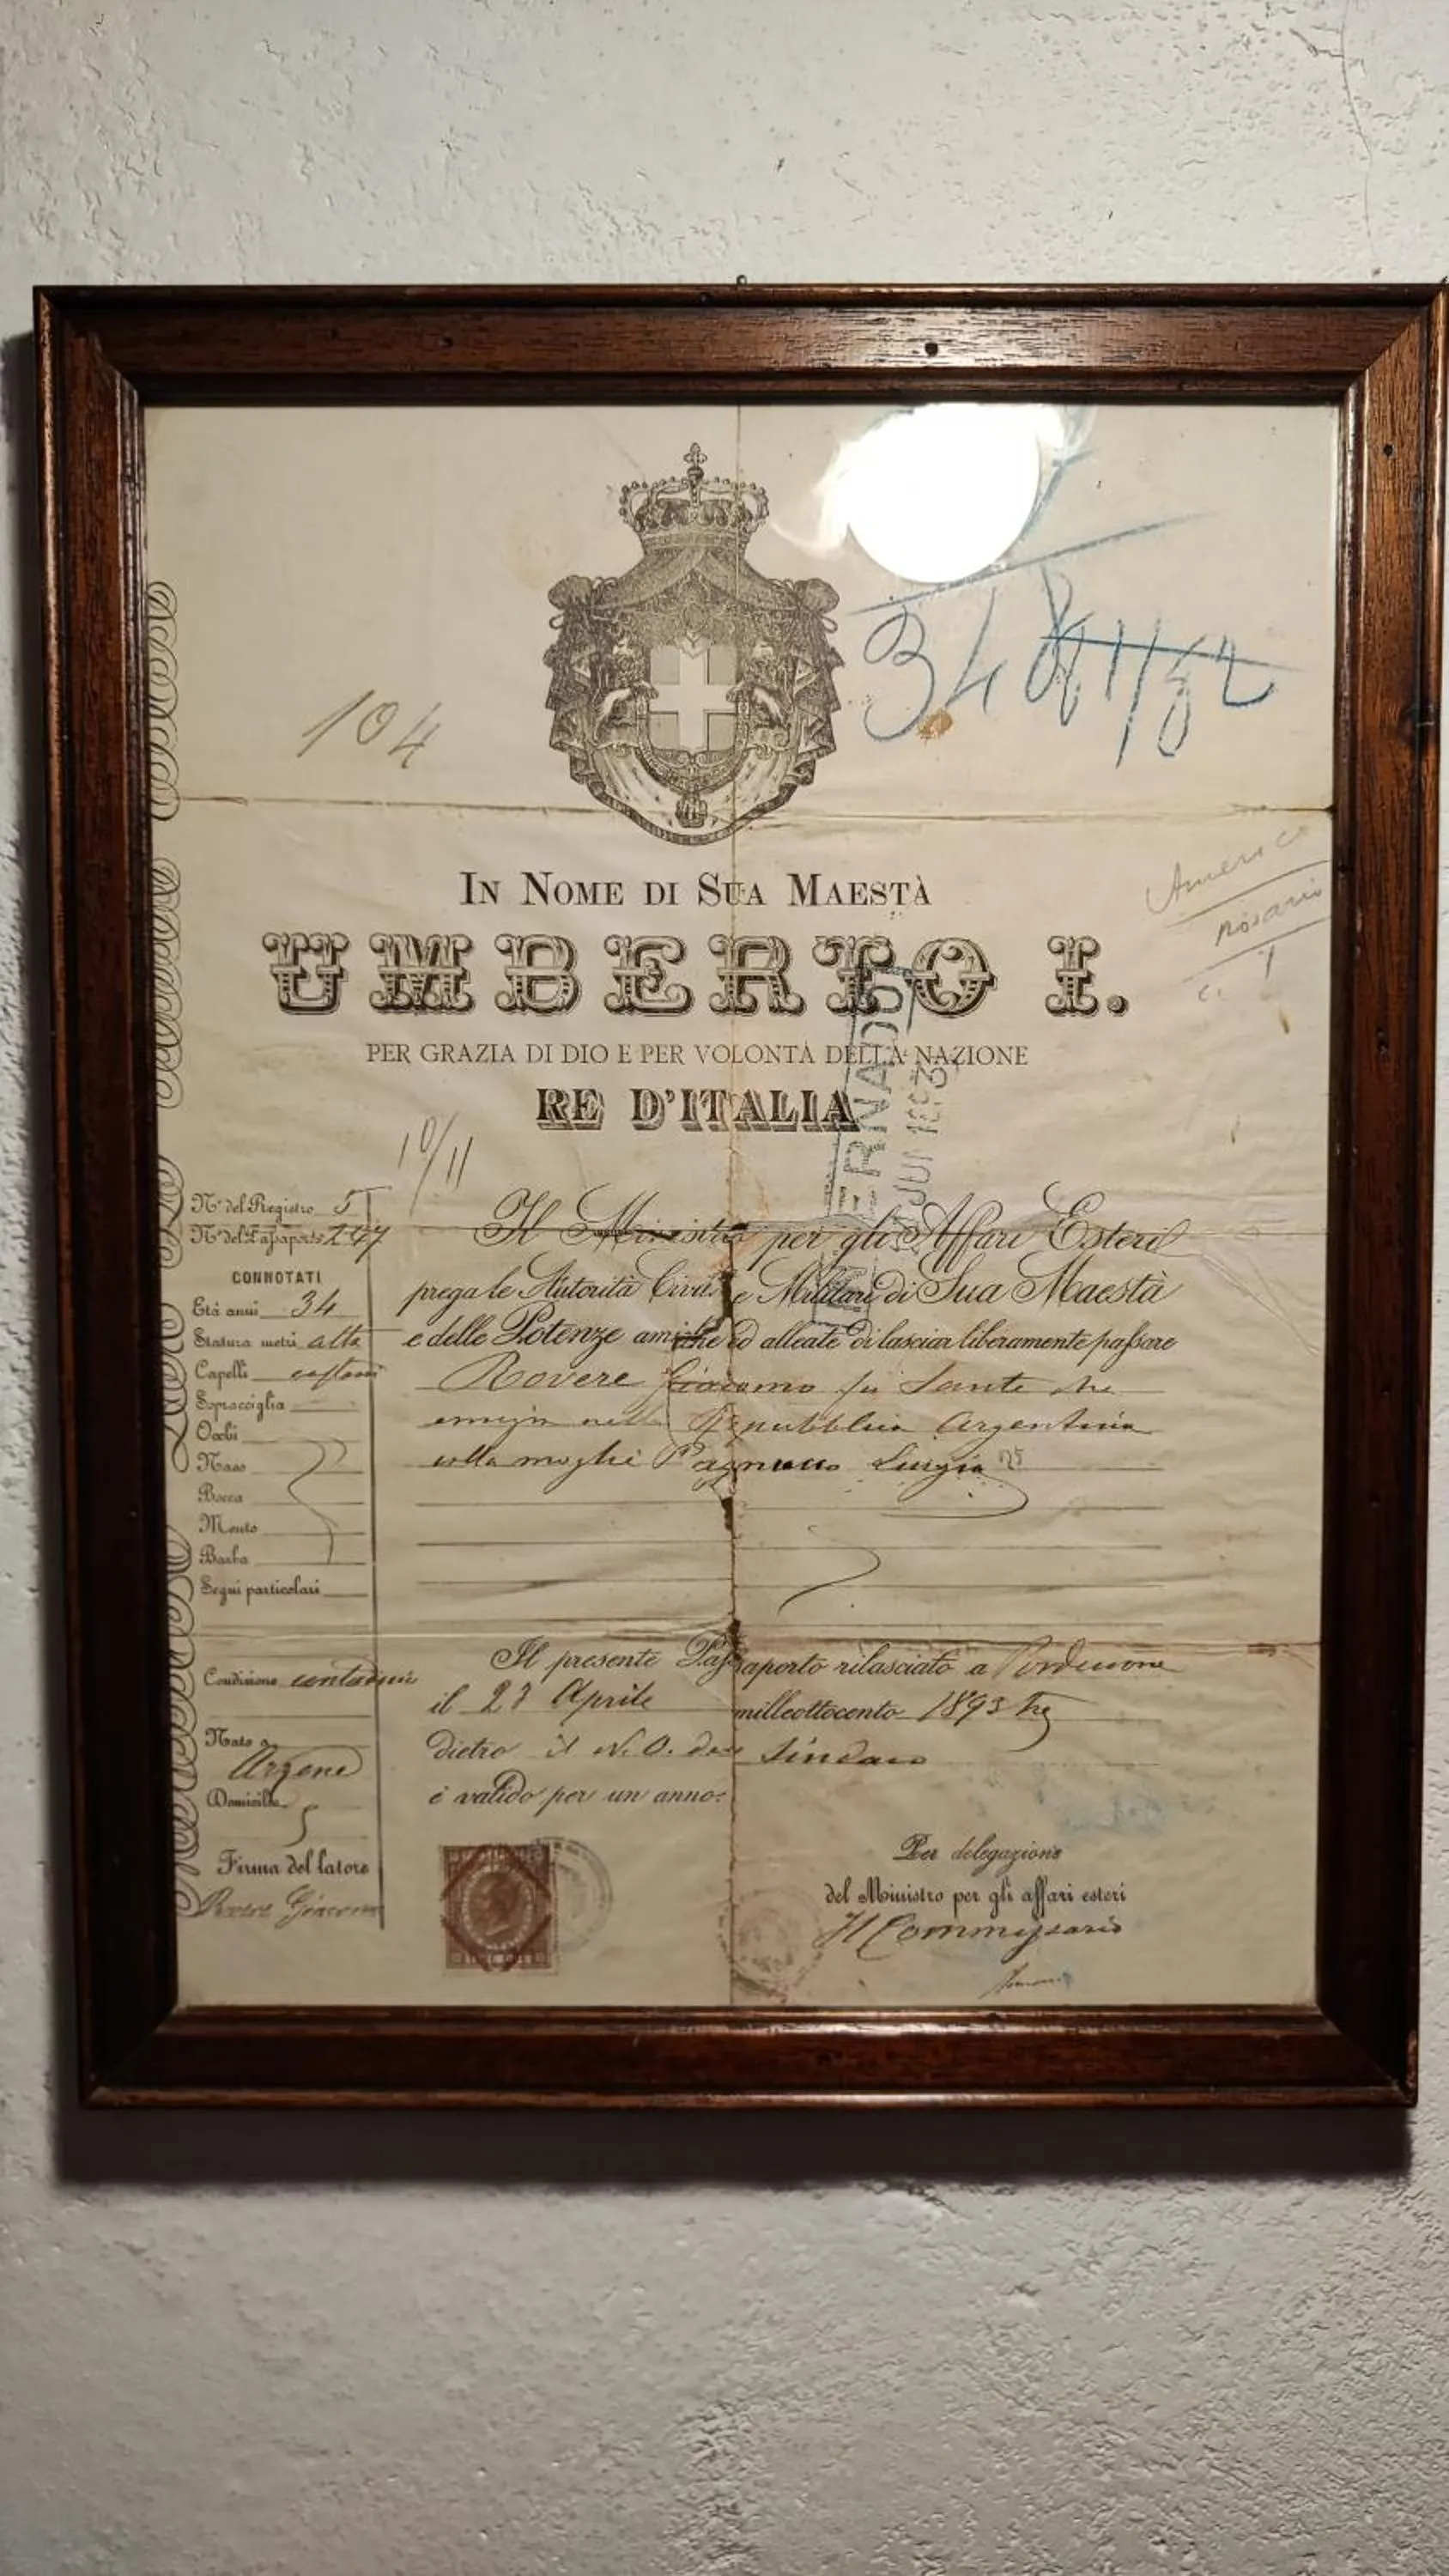 104
IN NOME DI SUA MAESTÀ
UMBERTO I.
PER GRAZIA DI DIO E PER VOLONTÀ DELLA NAZIONE
RE D'ITALIA
America
Rosario
1
10/11
JUI 1893
Nº del Registro
Nº del Passaporto
CONNOTATI
Età anni 34
Statura metri alta
Capelli castani
Sopracciglia
Occhi
Naso
Bocca
Mento
Barba
Segni particolari
Condizione contadini
Nato a
Arzene
Domicilio
Firma del latore
Rovere Giacomo
Il Ministro per gli Affari Esteri
prega le Autorità Civili e Militari di Sua Maestà
e delle Potenze amiche ed alleate di lasciar liberamente passare
Rovere Giacomo fu Sante che
emigra nella Repubblica Argentina
colla moglie Pagnucco Luigia
Il presente Passaporto rilasciato a Pordenone
il 23 Aprile milleottocento 1893
dietro il N. O. del Sindaco
è valido per un anno.
Per delegazione
del Ministro per gli affari esteri
Il Commissario